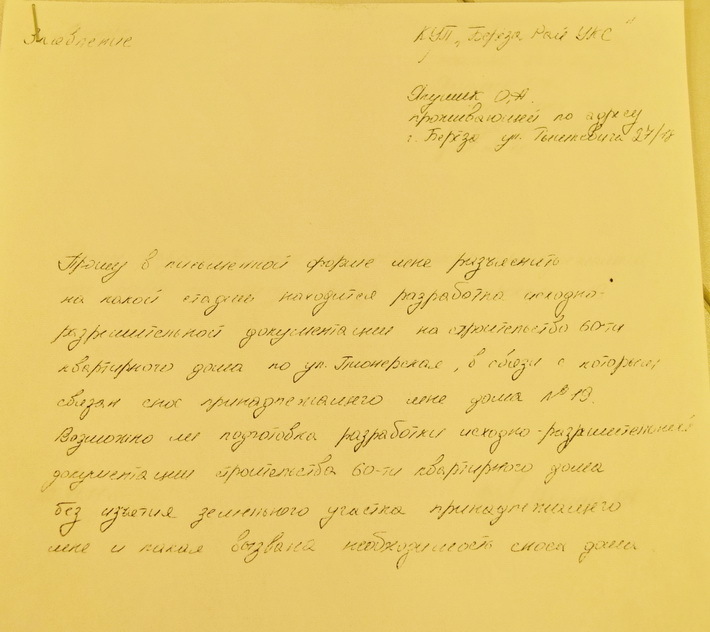 Заявление
КУП „Берёза Рай УКС"
О,А.
проживающей по адресу
г. Берёза ул. 27/18
Прошу в письменной форме мне разъяснить
на какой стадии находится разработка исходно-
разрешительной документации на строительство 60-ти
квартирного дома по ул. Пионерская, в связи с которым
связан снос принадлежащего мне дома № 19.
Возможно ли подготовка разработки исходно-разрешительной
документации строительства 60-ти квартирного дома
без изъятия земельного участка принадлежащего
мне и какая вызвана необходимость сноса дома